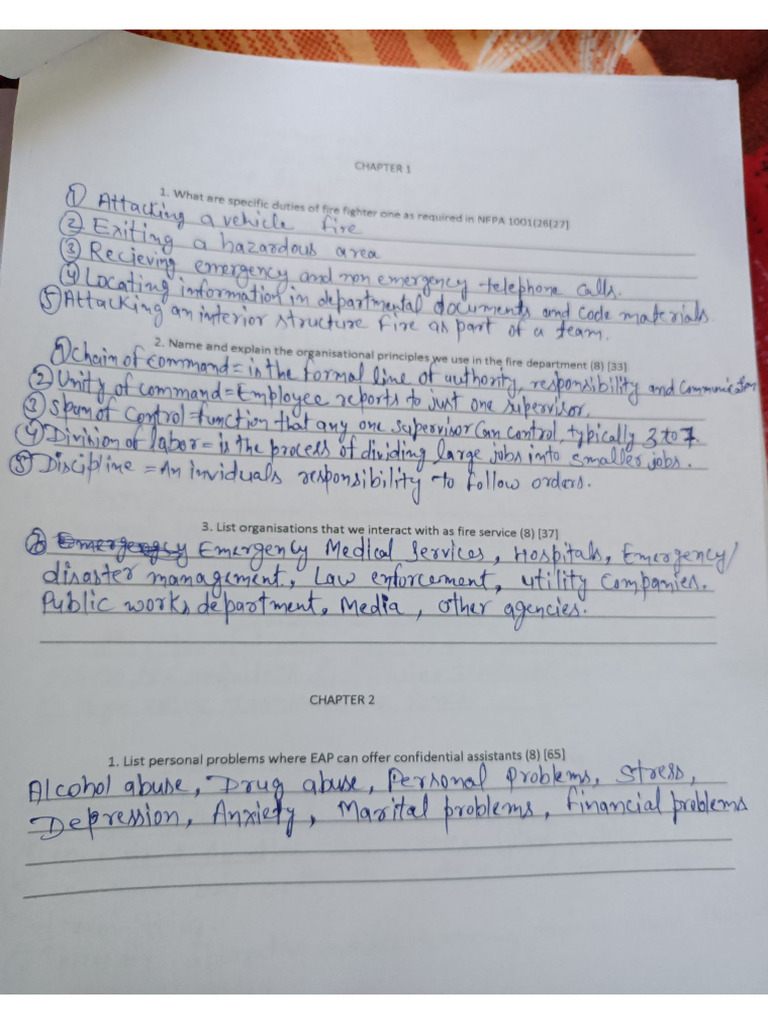 CHAPTER 1
1. What are specific duties of fire fighter one as required in NFPA 1001(26[27]
① Attacking a vehicle fire
② Exiting a hazardous area
③ Recieving emergency and non emergency telephone calls.
④ Locating information in departmental documents and code materials
⑤ Attacking an interior structure fire as part of a team.
2. Name and explain the organisational principles we use in the fire department (8) [33]
① Chain of command = is the formal line of authority, responsibility and communication
② Unity of command = Employee reports to just one supervisor.
③ Span of control = function that any one supervisor can control, typically 3 to 7.
④ Division of labor = is the process of dividing large jobs into smaller jobs.
⑤ Discipline = An inviduals responsibility to follow orders.
3. List organisations that we interact with as fire service (8) [37]
Emergency Medical Services, Hospitals, Emergency/
disaster management, Law enforcement, utility companies.
Public works department, Media, other agencies.
CHAPTER 2
1. List personal problems where EAP can offer confidential assistants (8) [65]
Alcohol abuse, Drug abuse, Personal problems, Stress,
Depression, Anxiety, Marital problems, financial problems